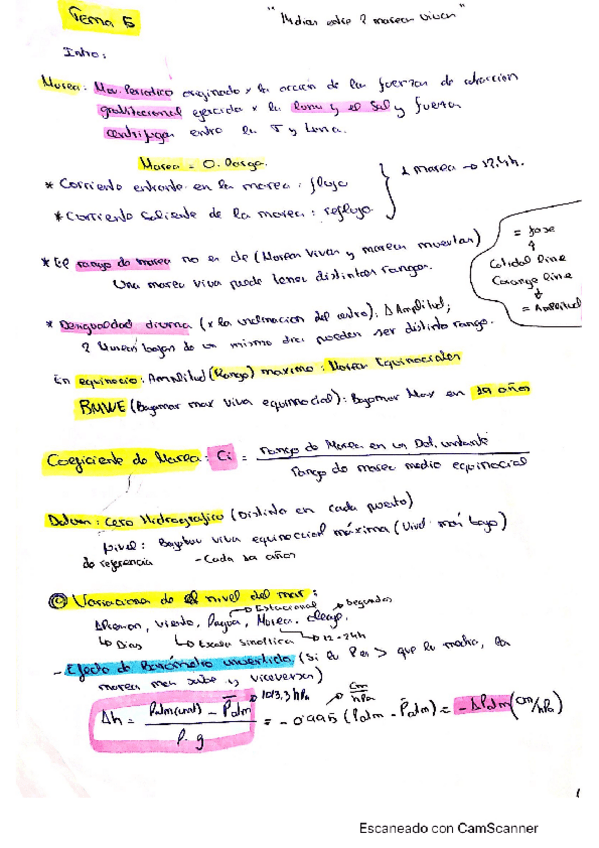 Tema 5
"14 dias entre 2 mareas vivas"
Intro:
Marea: Mov. Periodico originado x la acción de la fuerza de atracción
gravitacional ejercida x la luna y el Sol y fuerza
centrifuga entre la T y Luna.
Marea = O. Larga.
* Corriente entrante en la marea: flujo
* Corriente Saliente de la marea: reflujo
1 marea → 12,4h.
* El rango de marea no es cte (Mareas Vivas y mareas muertas)
Una marea viva puede tener distintos rangos.
= fase
Cotidal line
Corange line
= Amplitud
* Desigualdad diurna (x la inclinacion del astro): Δ Amplitud;
2 mareas bajas de un mismo dia pueden ser distinto rango.
En equinocio: Amplitud (Rango) maximo: Mareas Equinociales
BMVE (Bajamar max viva equinocial): Bajamar Max en 19 años
Coeficiente de Marea: Ci = rango de Marea en un Det. instante
rango de marea medio equinocial
Datum: Cero Hidrografico (Distinto en cada puerto)
nivel: Bajamar viva equinoccial máxima (Nivel más bajo)
de referencia - Cada 19 años
Variaciones de el nivel del mar:
→ Estacional → Segundos
ΔPresion, Viento, Dagua, Marea. oleaje.
↳ Dias ↳ Escala Sinoltica → 12-24h
- Efecto de Barómetro invertido (Si la Per > que la media, la
marea men sube y viceversa)
→ 1013,3 hPa → cm/hPa
Δh = Patm(inst) - P̄atm / ρ · g = - 0'995 (Patm - P̄atm) = - ΔPatm (cm/hPa)
Escaneado con CamScanner